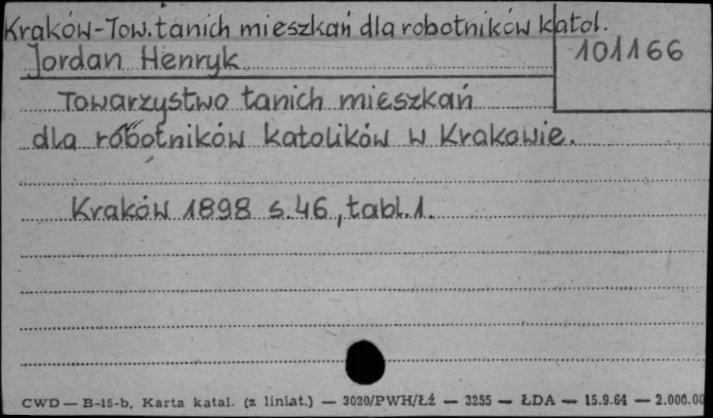 Kraków-Tow. tanich mieszkań dla robotników katol.
Jordan Henryk
101166
Towarzystwo tanich mieszkań
dla robotników katolików w Krakowie.
Kraków 1898 s. 46, tabl. 1.
CWD — B-15-b, Karta katal. (z liniat.) — 3020/PWH/Łź — 3255 — ŁDA — 15.9.64 — 2.000.00